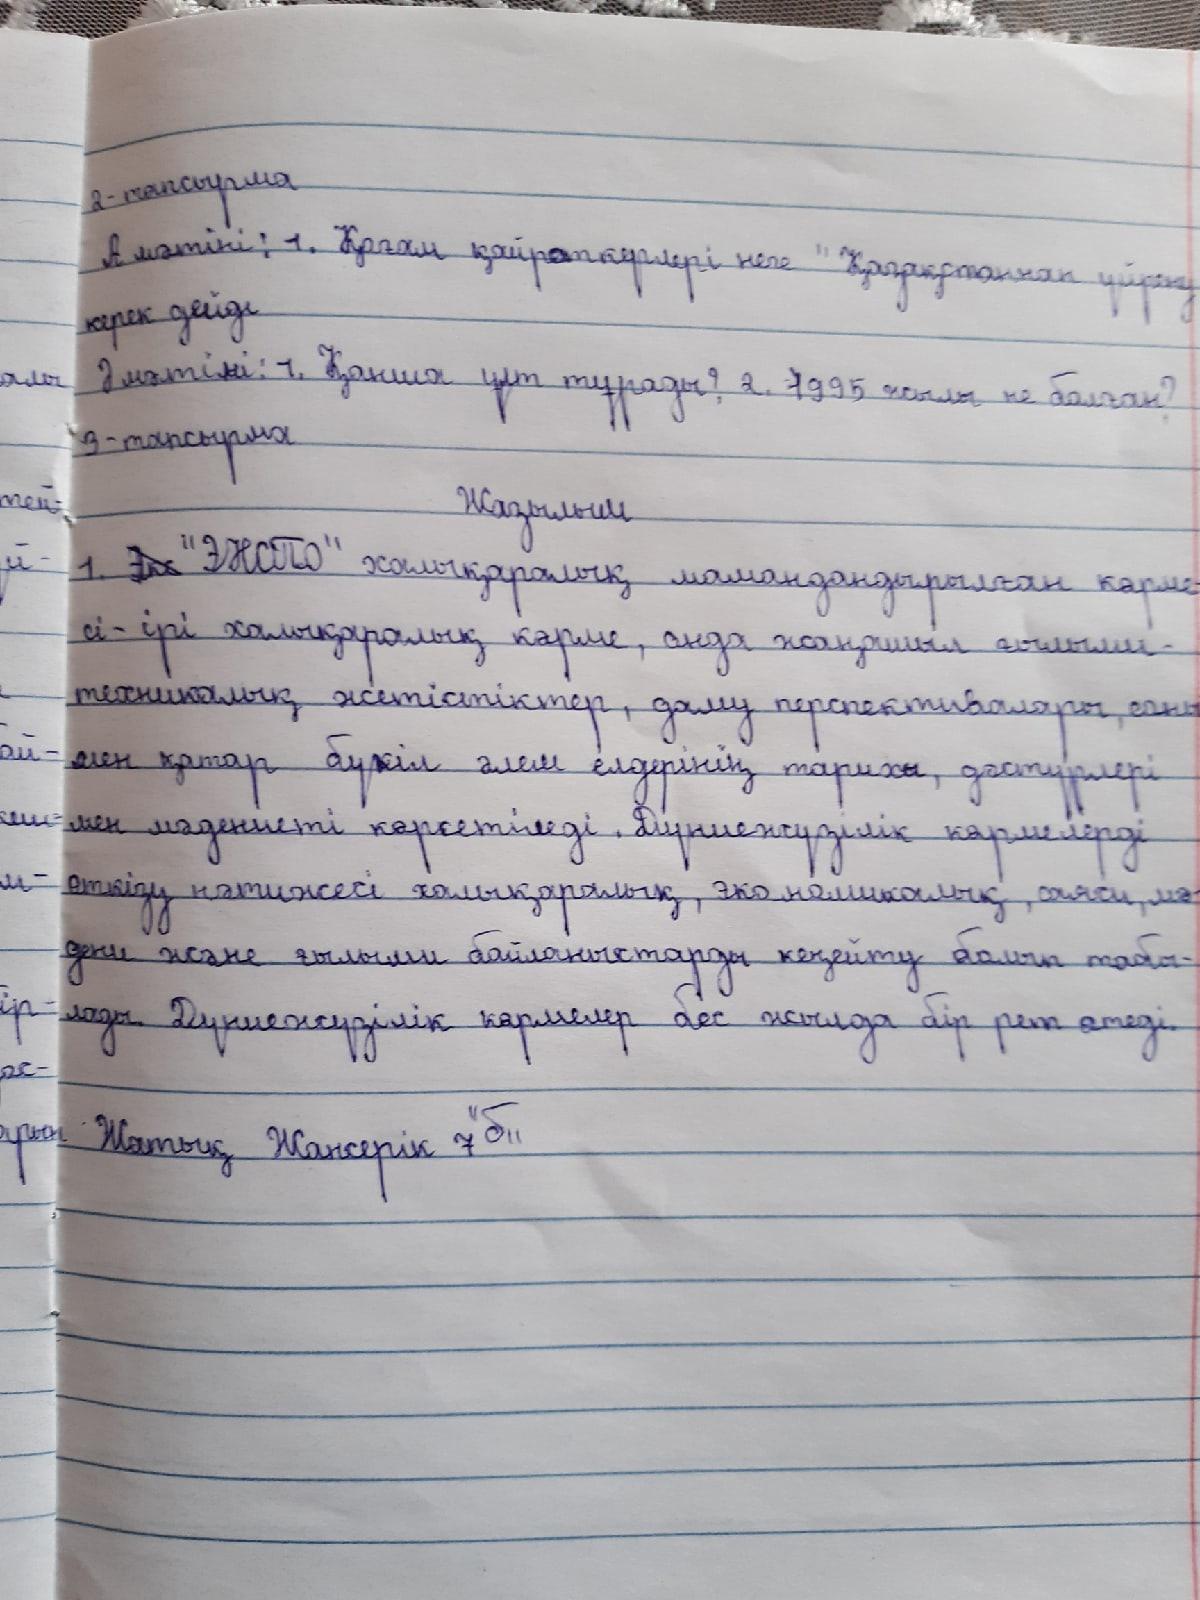 2-тапсырма
А мәтіні: 1. Қоғам қайраткерлері неге "Қазақстаннан үйрену
керек дейді
Ә мәтіні: 1. Қанша ұлт тұрады? 2. 1995 жылы не болған?
3-тапсырма
Жазылым
1. "ЭКСПО" халықаралық мамандандырылған көрме-
сі - ірі халықаралық көрме, онда жаңашыл ғылыми-
техникалық жетістіктер, даму перспективалары, соны-
мен қатар бүкіл әлем елдерінің тарихы, дәстүрлері
мен мәдениеті көрсетіледі. Дүниежүзілік көрмелерді
өткізу нәтижесі халықаралық, экономикалық, саяси, мә-
дени және ғылыми байланыстарды кеңейту болып табы-
лады. Дүниежүзілік көрмелер бес жылда бір рет өтеді.
Жатық Жансерік 7 "б"